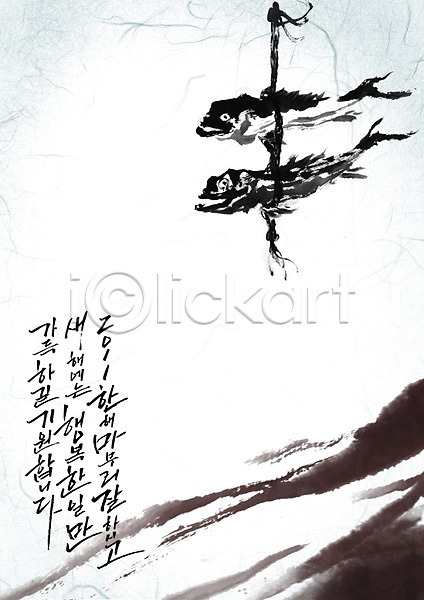 2011 한해 마무리 잘 하시고
새해에는 행복한 일만
가득하길 기원합니다
iclickart